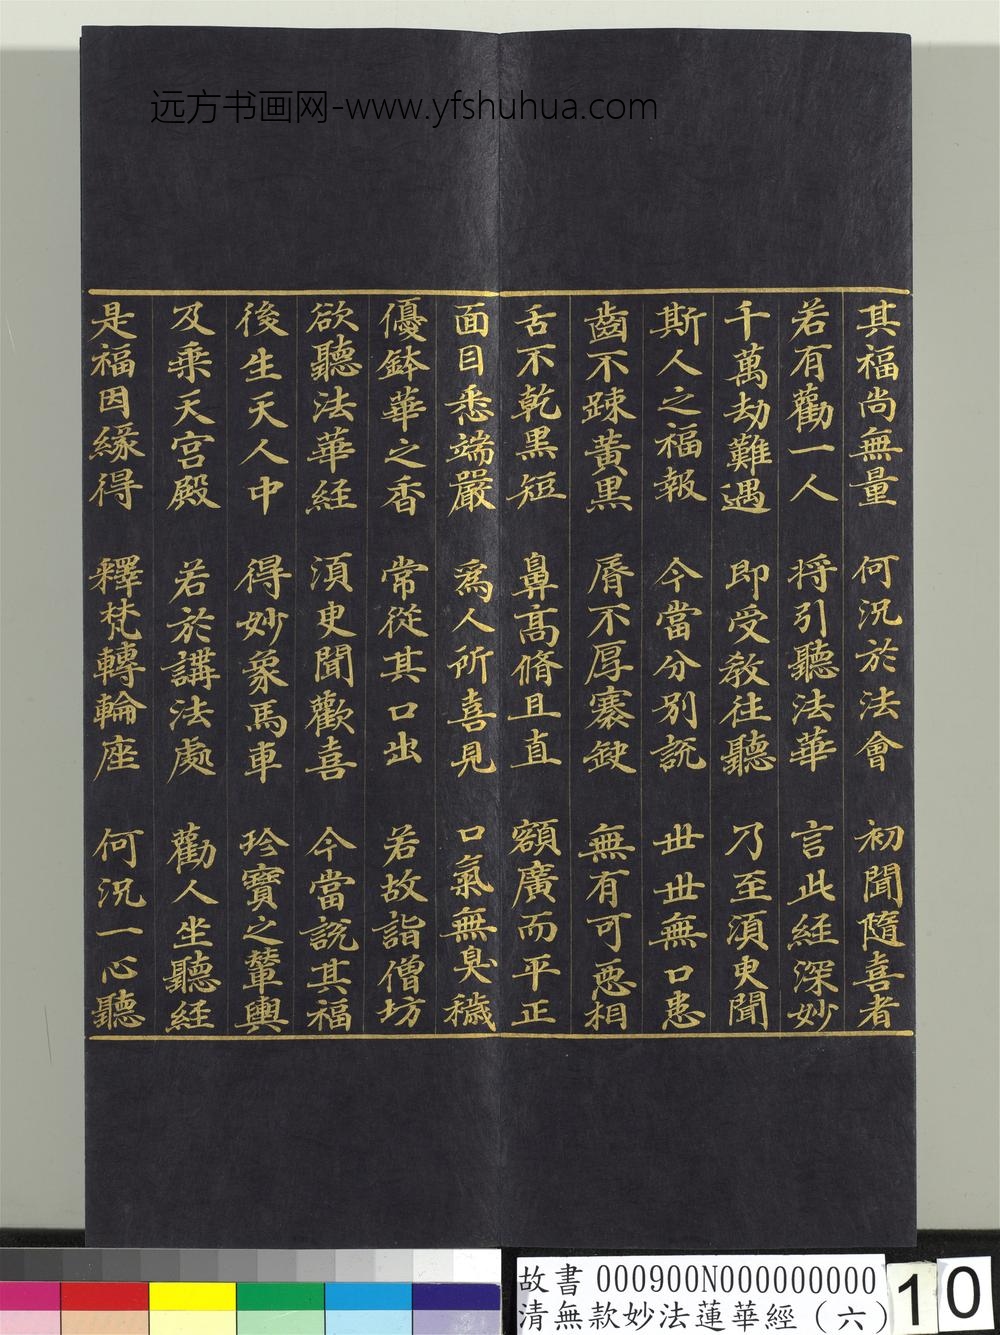 远方书画网-www.yfshuhua.com
其福尚無量 何況於法會 初聞隨喜者
若有勸一人 将引聽法華 言此経深妙
千萬劫難遇 即受教往聽 乃至湏臾聞
斯人之福報 今當分別説 世世無口患
齒不踈黄黑 脣不厚褰缺 無有可惡相
舌不乾黒短 鼻髙脩且直 額廣而平正
面目悉端嚴 為人所喜見 口氣無臭穢
優鉢華之香 常從其口出 若故詣僧坊
欲聽法華経 湏臾聞歡喜 今當説其福
後生天人中 得妙象馬車 珍寶之輦輿
及乗天宫殿 若於講法處 勸人坐聽経
是福因緣得 釋梵轉輪座 何況一心聽
故書 000900N000000000
清無款妙法蓮華經（六）
10